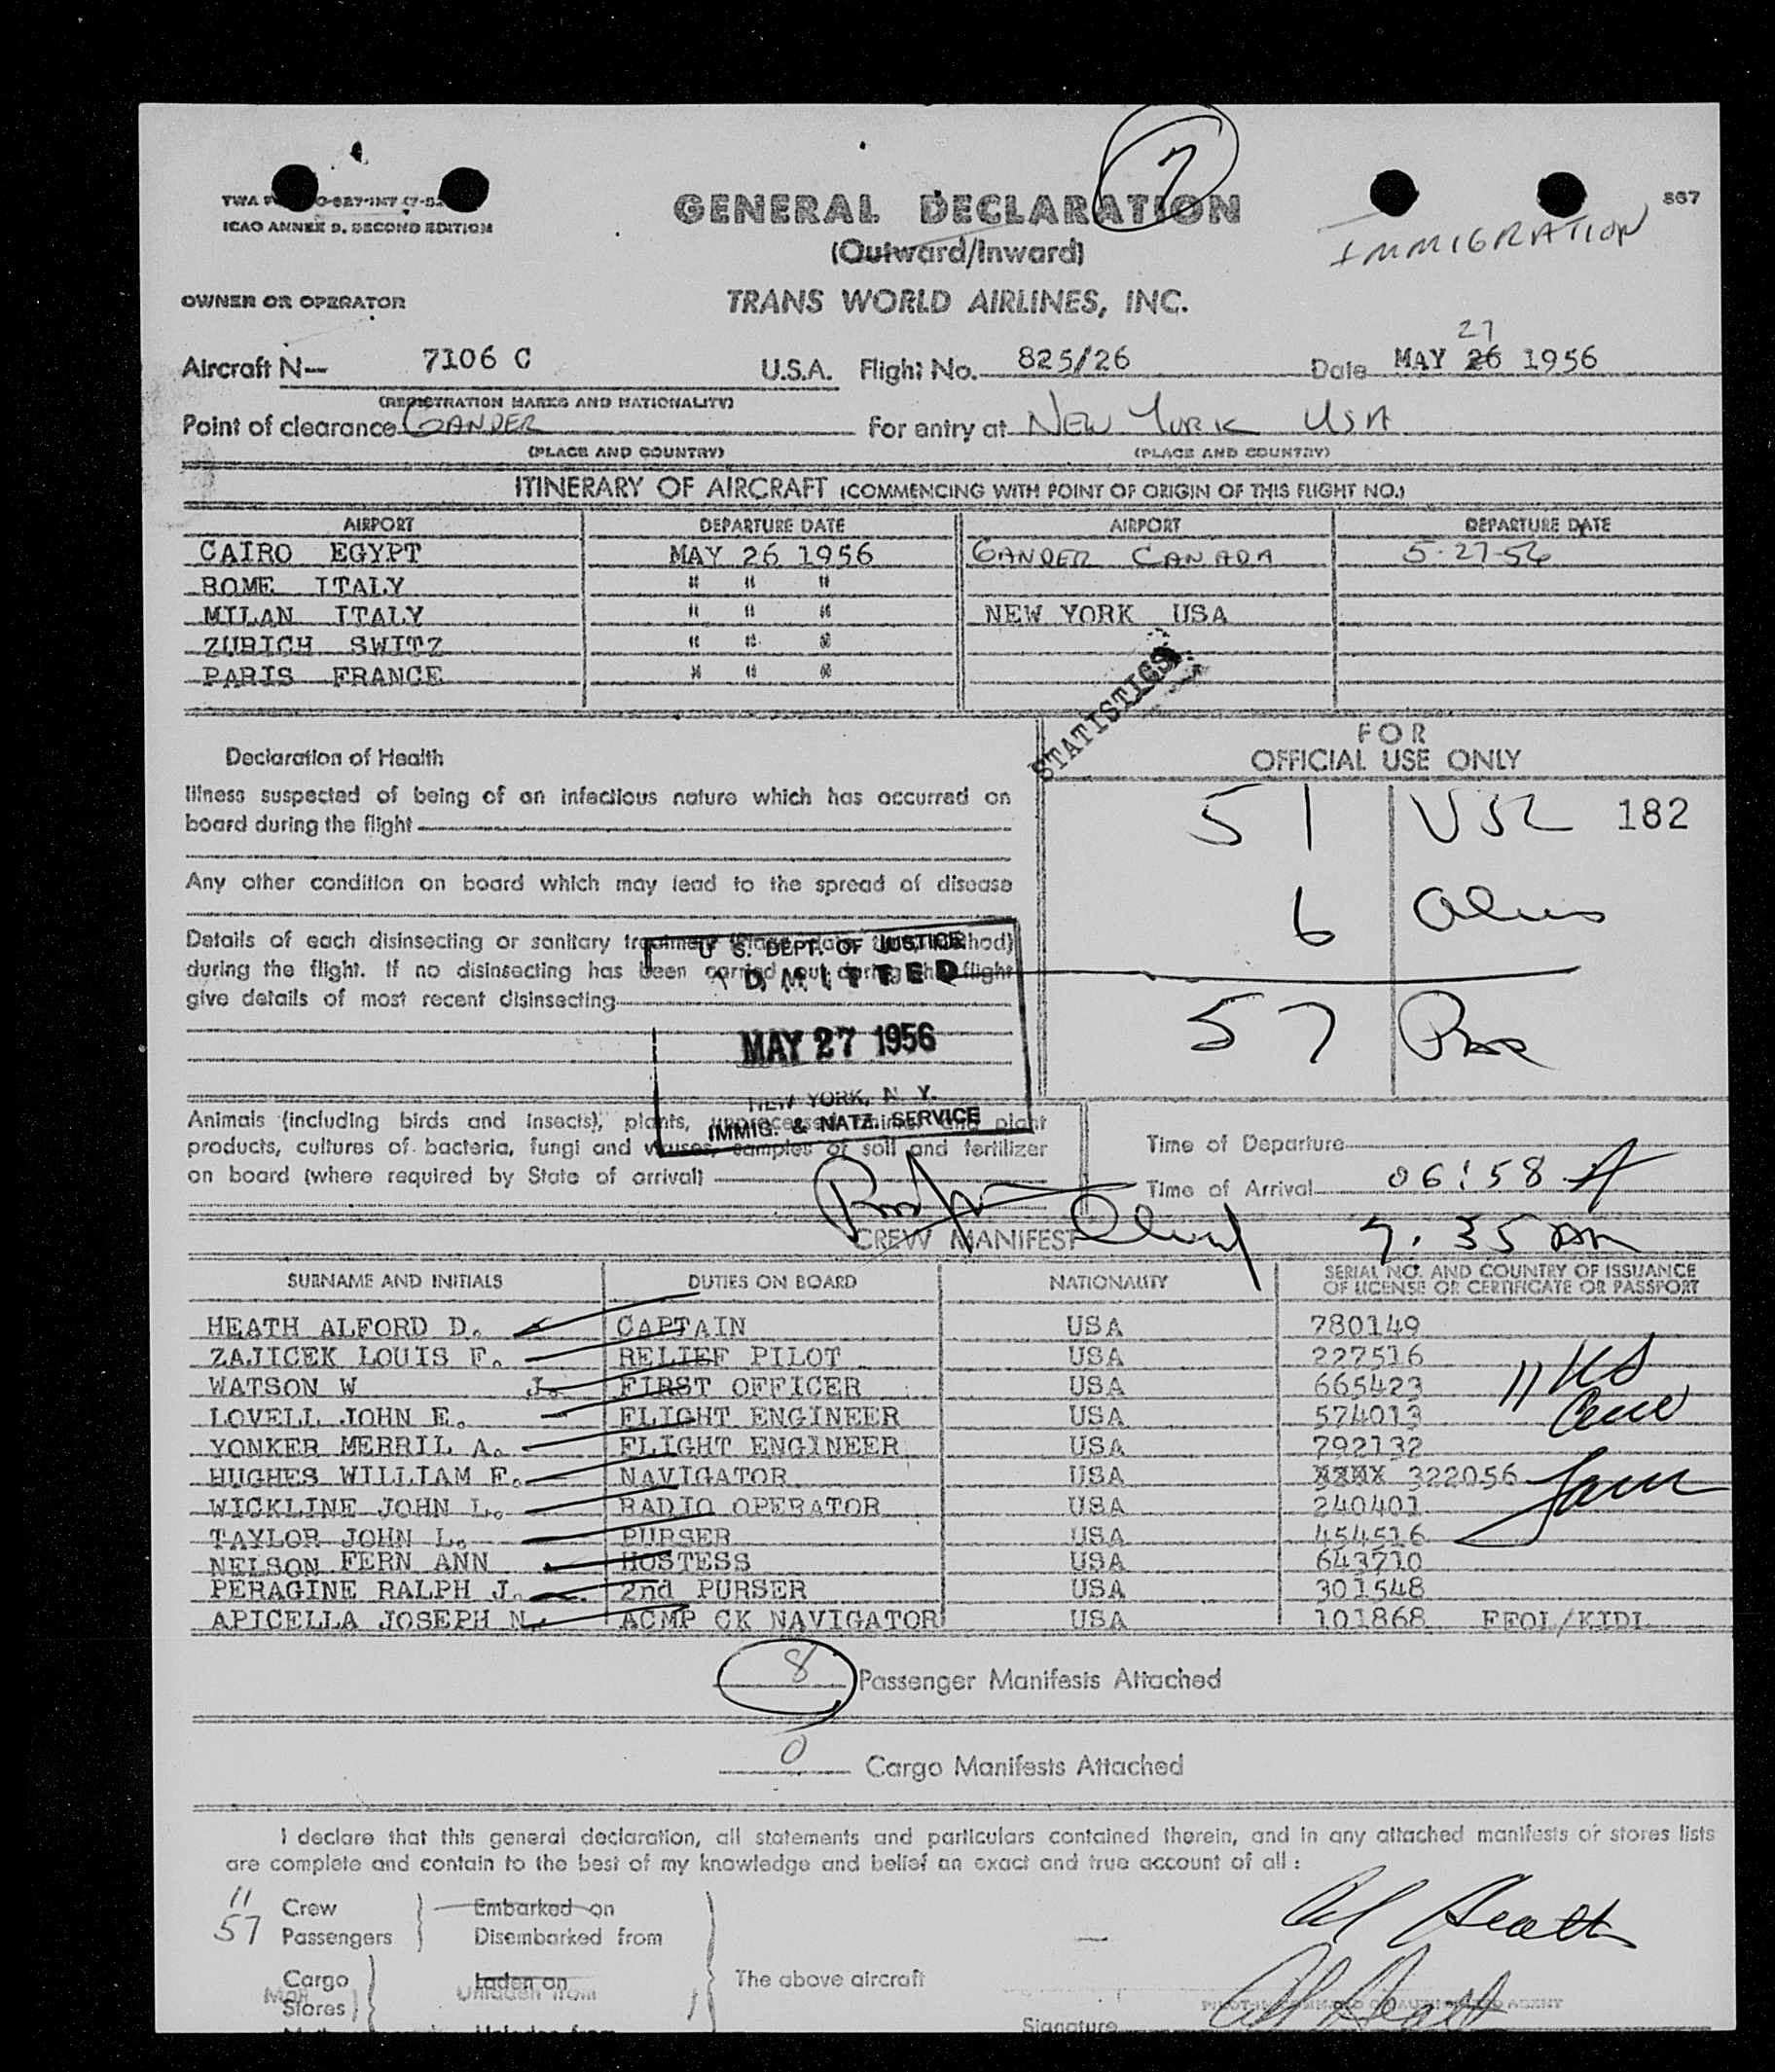 7
867
GENERAL DECLARATION
IMMIGRATION
ICAO ANNEX 9, SECOND EDITION
(Outward/Inward)
OWNER OR OPERATOR
TRANS WORLD AIRLINES, INC.
27
Aircraft N— 7106 C U.S.A. Flight No. 825/26 Date MAY 26 1956
(REGISTRATION MARKS AND NATIONALITY)
Point of clearance GANDER For entry at NEW YORK USA
(PLACE AND COUNTRY) (PLACE AND COUNTRY)
ITINERARY OF AIRCRAFT (COMMENCING WITH POINT OF ORIGIN OF THIS FLIGHT NO.)
AIRPORT DEPARTURE DATE AIRPORT DEPARTURE DATE
CAIRO EGYPT MAY 26 1956 GANDER CANADA 5-27-56
ROME ITALY " " "
MILAN ITALY " " " NEW YORK USA
ZURICH SWITZ " " "
PARIS FRANCE " " "
STATISTICS
FOR
OFFICIAL USE ONLY
Declaration of Health
Illness suspected of being of an infectious nature which has occurred on
board during the flight
51 USC 182
Any other condition on board which may lead to the spread of disease
6 Aliens
Details of each disinsecting or sanitary treatment (place, date, time, method)
during the flight. If no disinsecting has been carried out during the flight
give details of most recent disinsecting
57 Pax
U. S. DEPT. OF JUSTICE
ADMITTED
MAY 27 1956
NEW YORK, N. Y.
IMMIG. & NATZ. SERVICE
Animals (including birds and insects), plants, unprocessed animal and plant
products, cultures of bacteria, fungi and viruses, samples of soil and fertilizer
on board (where required by State of arrival)
Time of Departure
Time of Arrival 06:58 A
7:35 AM
CREW MANIFEST
SURNAME AND INITIALS DUTIES ON BOARD NATIONALITY SERIAL NO. AND COUNTRY OF ISSUANCE OF LICENSE OR CERTIFICATE OR PASSPORT
HEATH ALFORD D. CAPTAIN USA 780149
ZAJICEK LOUIS F. RELIEF PILOT USA 227516
WATSON W J. FIRST OFFICER USA 665423
LOVELL JOHN E. FLIGHT ENGINEER USA 574013
YONKER MERRIL A. FLIGHT ENGINEER USA 792132
HUGHES WILLIAM F. NAVIGATOR USA XXXX 322056
WICKLINE JOHN L. RADIO OPERATOR USA 240401
TAYLOR JOHN L. PURSER USA 454516
NELSON FERN ANN HOSTESS USA 643710
PERAGINE RALPH J. 2nd PURSER USA 301548
APICELLA JOSEPH N. ACMP CK NAVIGATOR USA 101868 FFOL/KIDL
11 US
Crew
8 Passenger Manifests Attached
0 Cargo Manifests Attached
I declare that this general declaration, all statements and particulars contained therein, and in any attached manifests or stores lists
are complete and contain to the best of my knowledge and belief an exact and true account of all:
11 Crew Embarked on
57 Passengers Disembarked from
Al Heath
Cargo Laden on The above aircraft
Stores Unladen from
Al Heath
Signature